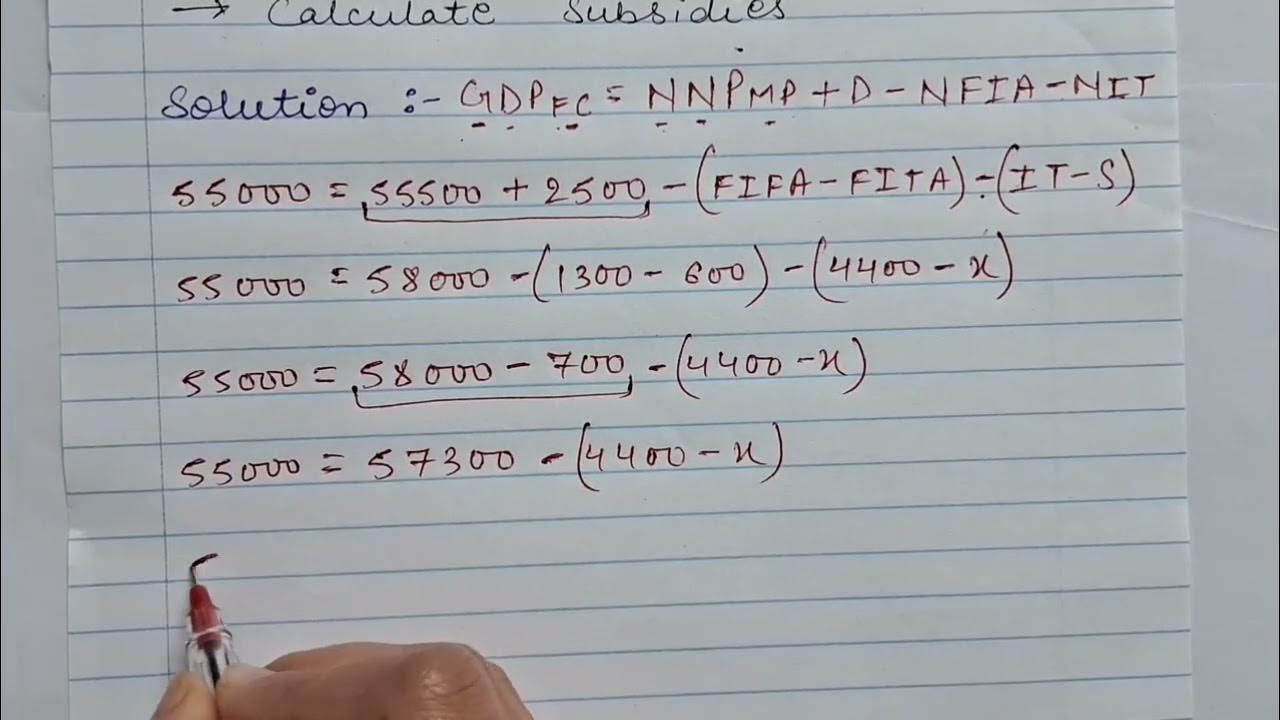 → Calculate Subsidies
Solution :- GDP FC = NNPMP + D - NFIA - NIT
55000 = 55500 + 2500 - (FIFA - FITA) - (IT - S)
55000 = 58000 - (1300 - 600) - (4400 - x)
55000 = 58000 - 700 - (4400 - x)
55000 = 57300 - (4400 - x)